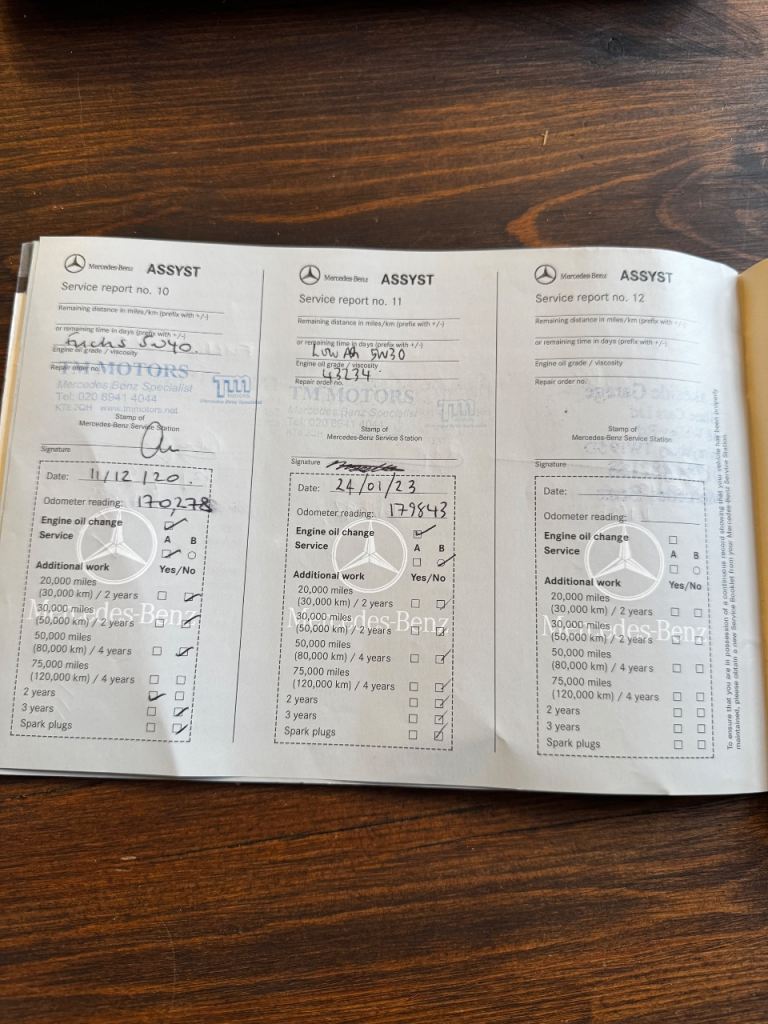 Mercedes-Benz ASSYST
Service report no. 10
Remaining distance in miles/km (prefix with +/-)
or remaining time in days (prefix with +/-)
Fuchs 5W40.
Engine oil grade / viscosity
Repair order no.
TM MOTORS
Mercedes Benz Specialist
Tel: 020 8941 4044
KT8 2QH www.tmmotors.net
tm
MOTORS
Stamp of
Mercedes-Benz Service Station
Signature
Date: 11/12/20.
Odometer reading: 170,278
Engine oil change
Service A B
Additional work Yes/No
20,000 miles
(30,000 km) / 2 years
30,000 miles
(50,000 km) / 2 years
50,000 miles
(80,000 km) / 4 years
75,000 miles
(120,000 km) / 4 years
2 years
3 years
Spark plugs
Mercedes-Benz
Mercedes-Benz ASSYST
Service report no. 11
Remaining distance in miles/km (prefix with +/-)
or remaining time in days (prefix with +/-)
Low Ash 5W30
Engine oil grade / viscosity
43234.
Repair order no.
TM MOTORS
Mercedes Benz Specialist
Tel: 020 8941
KT8 2QH
Stamp of
Mercedes-Benz Service Station
Signature
Date: 24/01/23
Odometer reading: 179843
Engine oil change
Service A B
Additional work Yes/No
20,000 miles
(30,000 km) / 2 years
30,000 miles
(50,000 km) / 2 years
50,000 miles
(80,000 km) / 4 years
75,000 miles
(120,000 km) / 4 years
2 years
3 years
Spark plugs
Mercedes-Benz
Mercedes-Benz ASSYST
Service report no. 12
Remaining distance in miles/km (prefix with +/-)
or remaining time in days (prefix with +/-)
Engine oil grade / viscosity
Repair order no.
Stamp of
Mercedes-Benz Service Station
Signature
Date:
Odometer reading:
Engine oil change
Service A B
Additional work Yes/No
20,000 miles
(30,000 km) / 2 years
30,000 miles
(50,000 km) / 2 years
50,000 miles
(80,000 km) / 4 years
75,000 miles
(120,000 km) / 4 years
2 years
3 years
Spark plugs
Mercedes-Benz
To ensure that you are in possession of a continuous record showing that your vehicle has been properly
maintained, please obtain a new Service Booklet from your Mercedes-Benz Service Station.